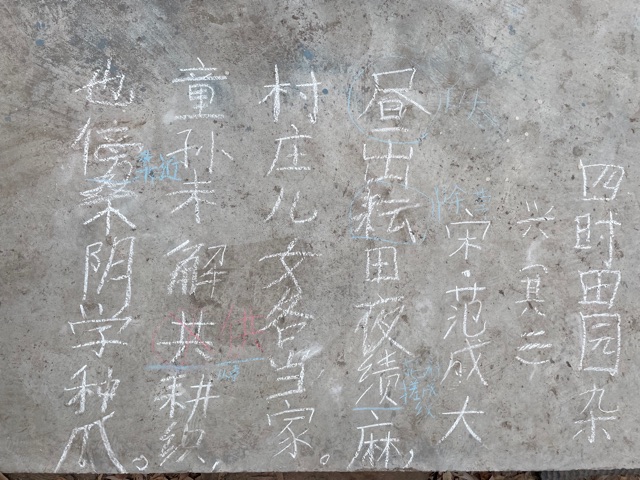 四时田园杂
兴(其二)
宋·范成大
昼出耘田夜绩麻,
除草
村庄儿女各当家。
童孙未解共耕织,
靠近
也傍桑阴学种瓜。